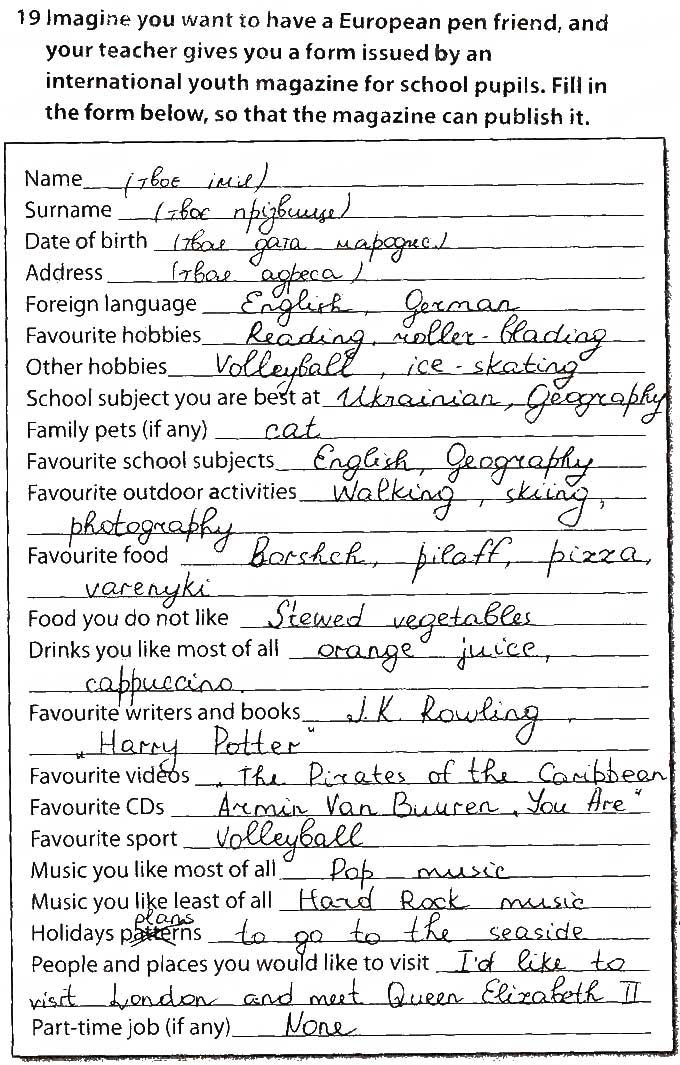 19 Imagine you want to have a European pen friend, and
your teacher gives you a form issued by an
international youth magazine for school pupils. Fill in
the form below, so that the magazine can publish it.
Name (твоє ім'я)
Surname (твоє прізвище)
Date of birth (твоя дата народжс.)
Address (твоя адреса)
Foreign language English, German
Favourite hobbies Reading, roller-blading
Other hobbies Volleyball, ice-skating
School subject you are best at Ukrainian, Geography
Family pets (if any) cat
Favourite school subjects English, Geography
Favourite outdoor activities Walking, skiing,
photography
Favourite food Borshch, pilaff, pizza,
varenyki
Food you do not like Stewed vegetables
Drinks you like most of all orange juice,
cappuccino
Favourite writers and books J.K. Rowling,
„Harry Potter"
Favourite videos „The Pirates of the Caribbean
Favourite CDs Armin Van Buuren „You Are"
Favourite sport Volleyball
Music you like most of all Pop music
Music you like least of all Hard Rock music
plans
Holidays patterns to go to the seaside
People and places you would like to visit I'd like to
visit London and meet Queen Elizabeth II
Part-time job (if any) None